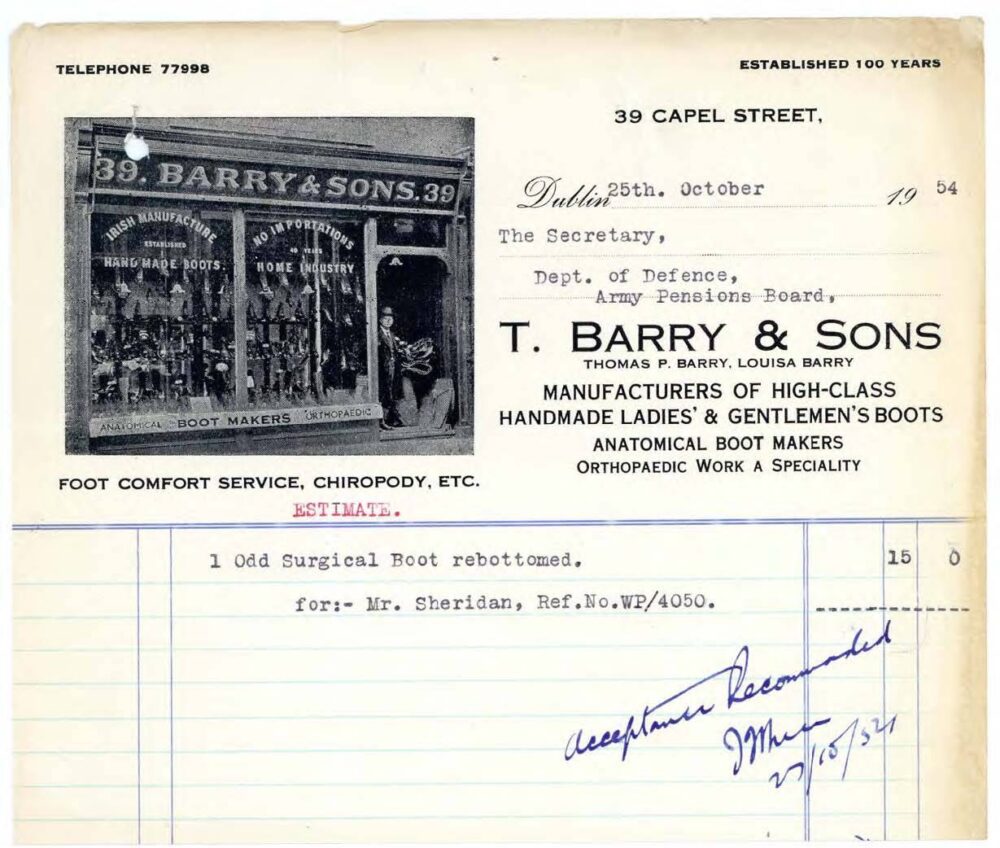 TELEPHONE 77998
ESTABLISHED 100 YEARS
39 CAPEL STREET,
39. BARRY & SONS. 39
IRISH MANUFACTURE
ESTABLISHED
HAND MADE BOOTS.
NO IMPORTATIONS
40 YEARS
HOME INDUSTRY
ANATOMICAL BOOT MAKERS ORTHOPAEDIC
FOOT COMFORT SERVICE, CHIROPODY, ETC.
Dublin 25th. October 19 54
The Secretary,
Dept. of Defence,
Army Pensions Board,
T. BARRY & SONS
THOMAS P. BARRY, LOUISA BARRY
MANUFACTURERS OF HIGH-CLASS
HANDMADE LADIES' & GENTLEMEN'S BOOTS
ANATOMICAL BOOT MAKERS
ORTHOPAEDIC WORK A SPECIALITY
ESTIMATE.
1 Odd Surgical Boot rebottomed. 15 0
for:- Mr. Sheridan, Ref.No.WP/4050.
Acceptance Recommended
27/10/54